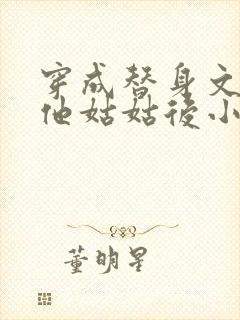 穿成替身文
他姑姑後小
董明星